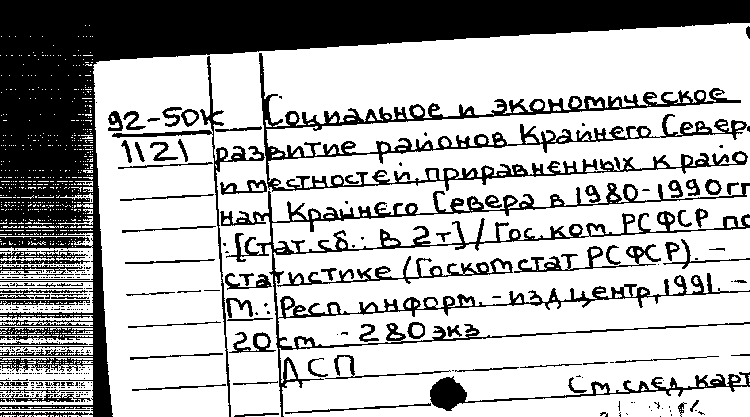 92-50К Социальное и экономическое
1121 развитие районов Крайнего Север
и местностей, приравненных к райо
нам Крайнего Севера в 1980-1990гг
: [Стат. сб.: В 2т] / Гос. ком. РСФСР по
статистике (Госкомстат РСФСР). –
М.: Респ. информ. - изд. центр, 1991. –
20 см. - 280 экз
ДСП
См. след. карт